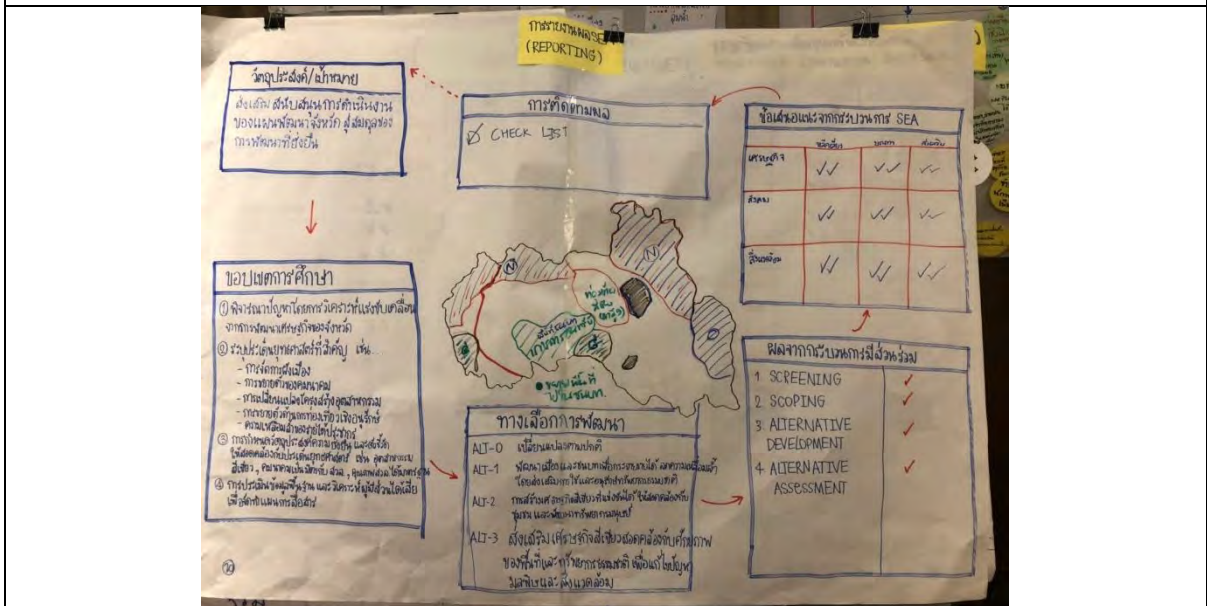 การรายงานผลSEA
(REPORTING)
วัตถุประสงค์/เป้าหมาย
ส่งเสริม สนับสนุน การดำเนินงาน
ของแผนพัฒนาจังหวัด สู่สมดุลของ
การพัฒนาที่ยั่งยืน
การติดตามผล
CHECK LIST
ข้อเสนอแนะจากกระบวนการ SEA
เศรษฐกิจ
สังคม
สิ่งแวดล้อม
ขอบเขตการศึกษา
① พิจารณาปัญหาโดยการวิเคราะห์แรงขับเคลื่อน
จากการพัฒนาเศรษฐกิจของจังหวัด
② ระบุประเด็นยุทธศาสตร์ที่สำคัญ เช่น..
- การจัดการผังเมือง
- การขยายตัวของคมนาคม
- การเปลี่ยนแปลงโครงสร้างอุตสาหกรรม
- การขยายตัวด้านการท่องเที่ยวเชิงอนุรักษ์
- ความเหลื่อมล้ำของรายได้ประชากร
③ การกำหนดวัตถุประสงค์ความยั่งยืน และตัวชี้วัด
ให้สอดคล้องกับประเด็นยุทธศาสตร์ เช่น อุตสาหกรรม
สีเขียว, คมนาคมเป็นมิตรกับ
④ การประเมินข้อมูลพื้นฐาน และวิเคราะห์ผู้มีส่วนได้เสีย
เพื่อจัดทำแผนการสื่อสาร
N
N
ทางเลือกการพัฒนา
ALT-0 เปลี่ยนแปลงตามปกติ
ALT-1 พัฒนาเมืองและชนบทเพื่อกระจายรายได้ ลดความเหลื่อมล้ำ
ALT-2 การสร้างเศรษฐกิจสีเขียวที่แข่งขันได้ ให้สอดคล้องกับ
ชุมชน และพัฒนาทรัพยากรมนุษย์
ALT-3 ส่งเสริมเศรษฐกิจสีเขียวสอดคล้องกับศักยภาพ
ของพื้นที่และทรัพยากรธรรมชาติ เพื่อแก้ไขปัญหา
มลพิษและสิ่งแวดล้อม
ผลจากกระบวนการมีส่วนร่วม
1 SCREENING
2 SCOPING
3 ALTERNATIVE
DEVELOPMENT
4. ALTERNATIVE
ASSESSMENT